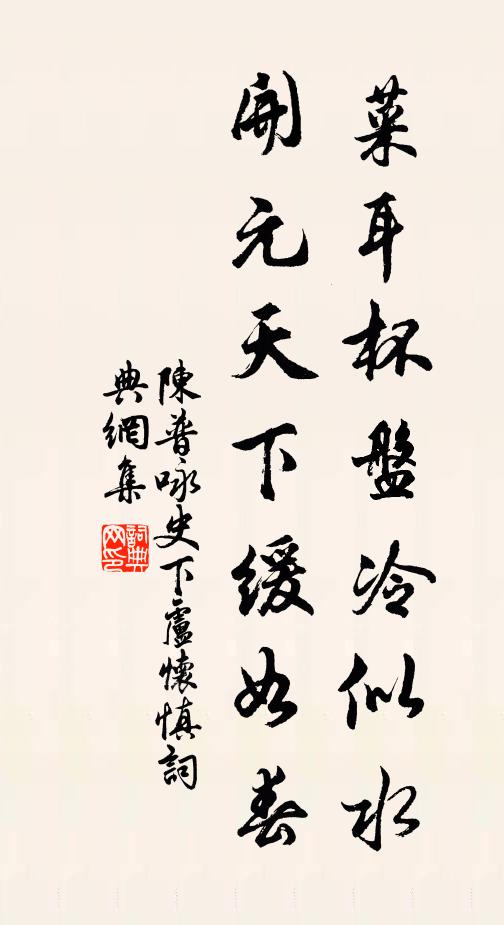 菜耳杯盤冷似水
開元天下緩如春
陳普咏史下盧懷慎詞
典網集
詞典
网印